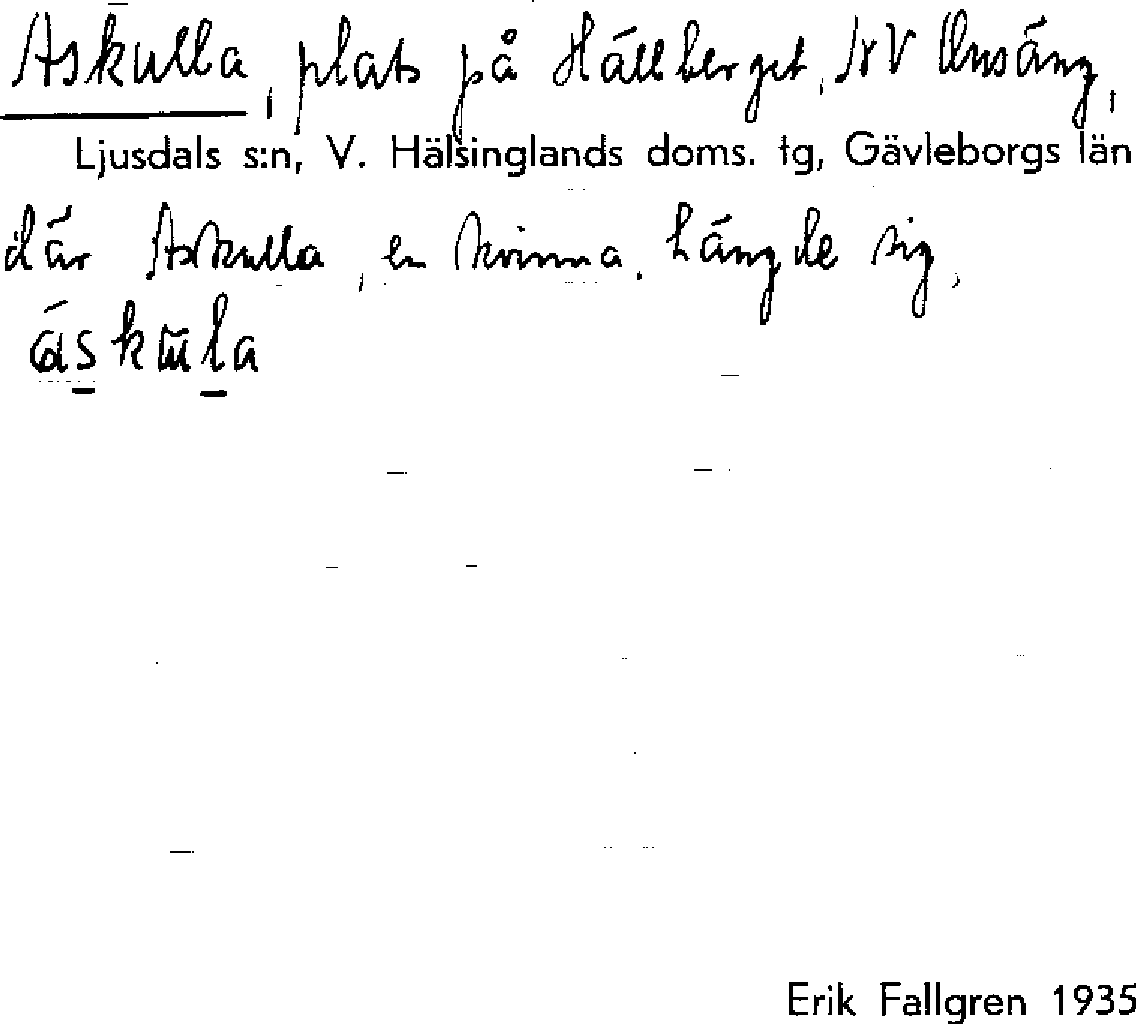 Askulla, plats på Hällberget, NV Onsäng,
Ljusdals s:n, V. Hälsinglands doms. tg, Gävleborgs län
där Askulla, en kvinna, hängde sig,
áskŭla
Erik Fallgren 1935